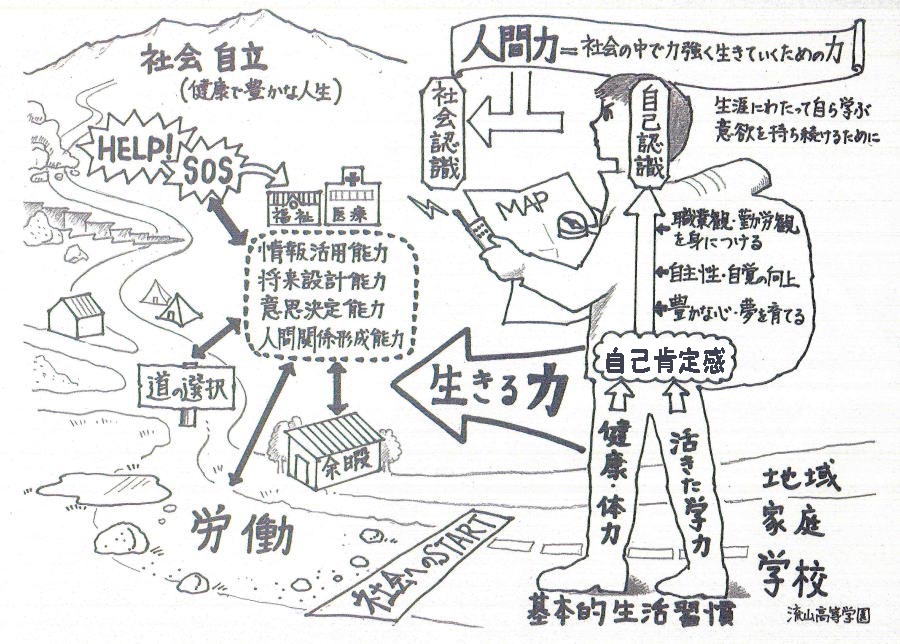 人間力=社会の中で力強く生きていくための力
社会自立
(健康で豊かな人生)
社会認識
自己認識
生涯にわたって自ら学ぶ
意欲を持ち続けるために
HELP!
SOS
福祉
医療
MAP
職業観・勤労観
を身につける
自主性・自覚の向上
豊かな心・夢を育てる
情報活用能力
将来設計能力
意思決定能力
人間関係形成能力
自己肯定感
生きる力
道の選択
余暇
健康・体力
活きた学力
労働
社会へのSTART
地域
家庭
学校
基本的生活習慣
流山高等学園